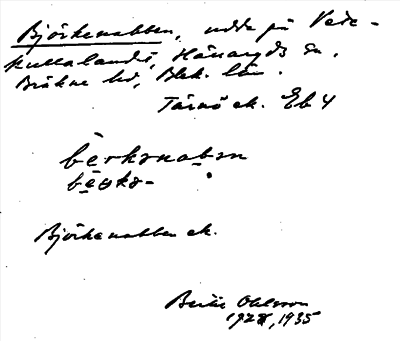 Björkenabben, udde på Vede-
kullalandet, Hällaryds sn,
Bräkne hd, Blek. län.
Tärnö ek. Eb 4
bërkənabən
bëske-
Björkenabben ek.
Bertil Ohlsson
1928, 1935